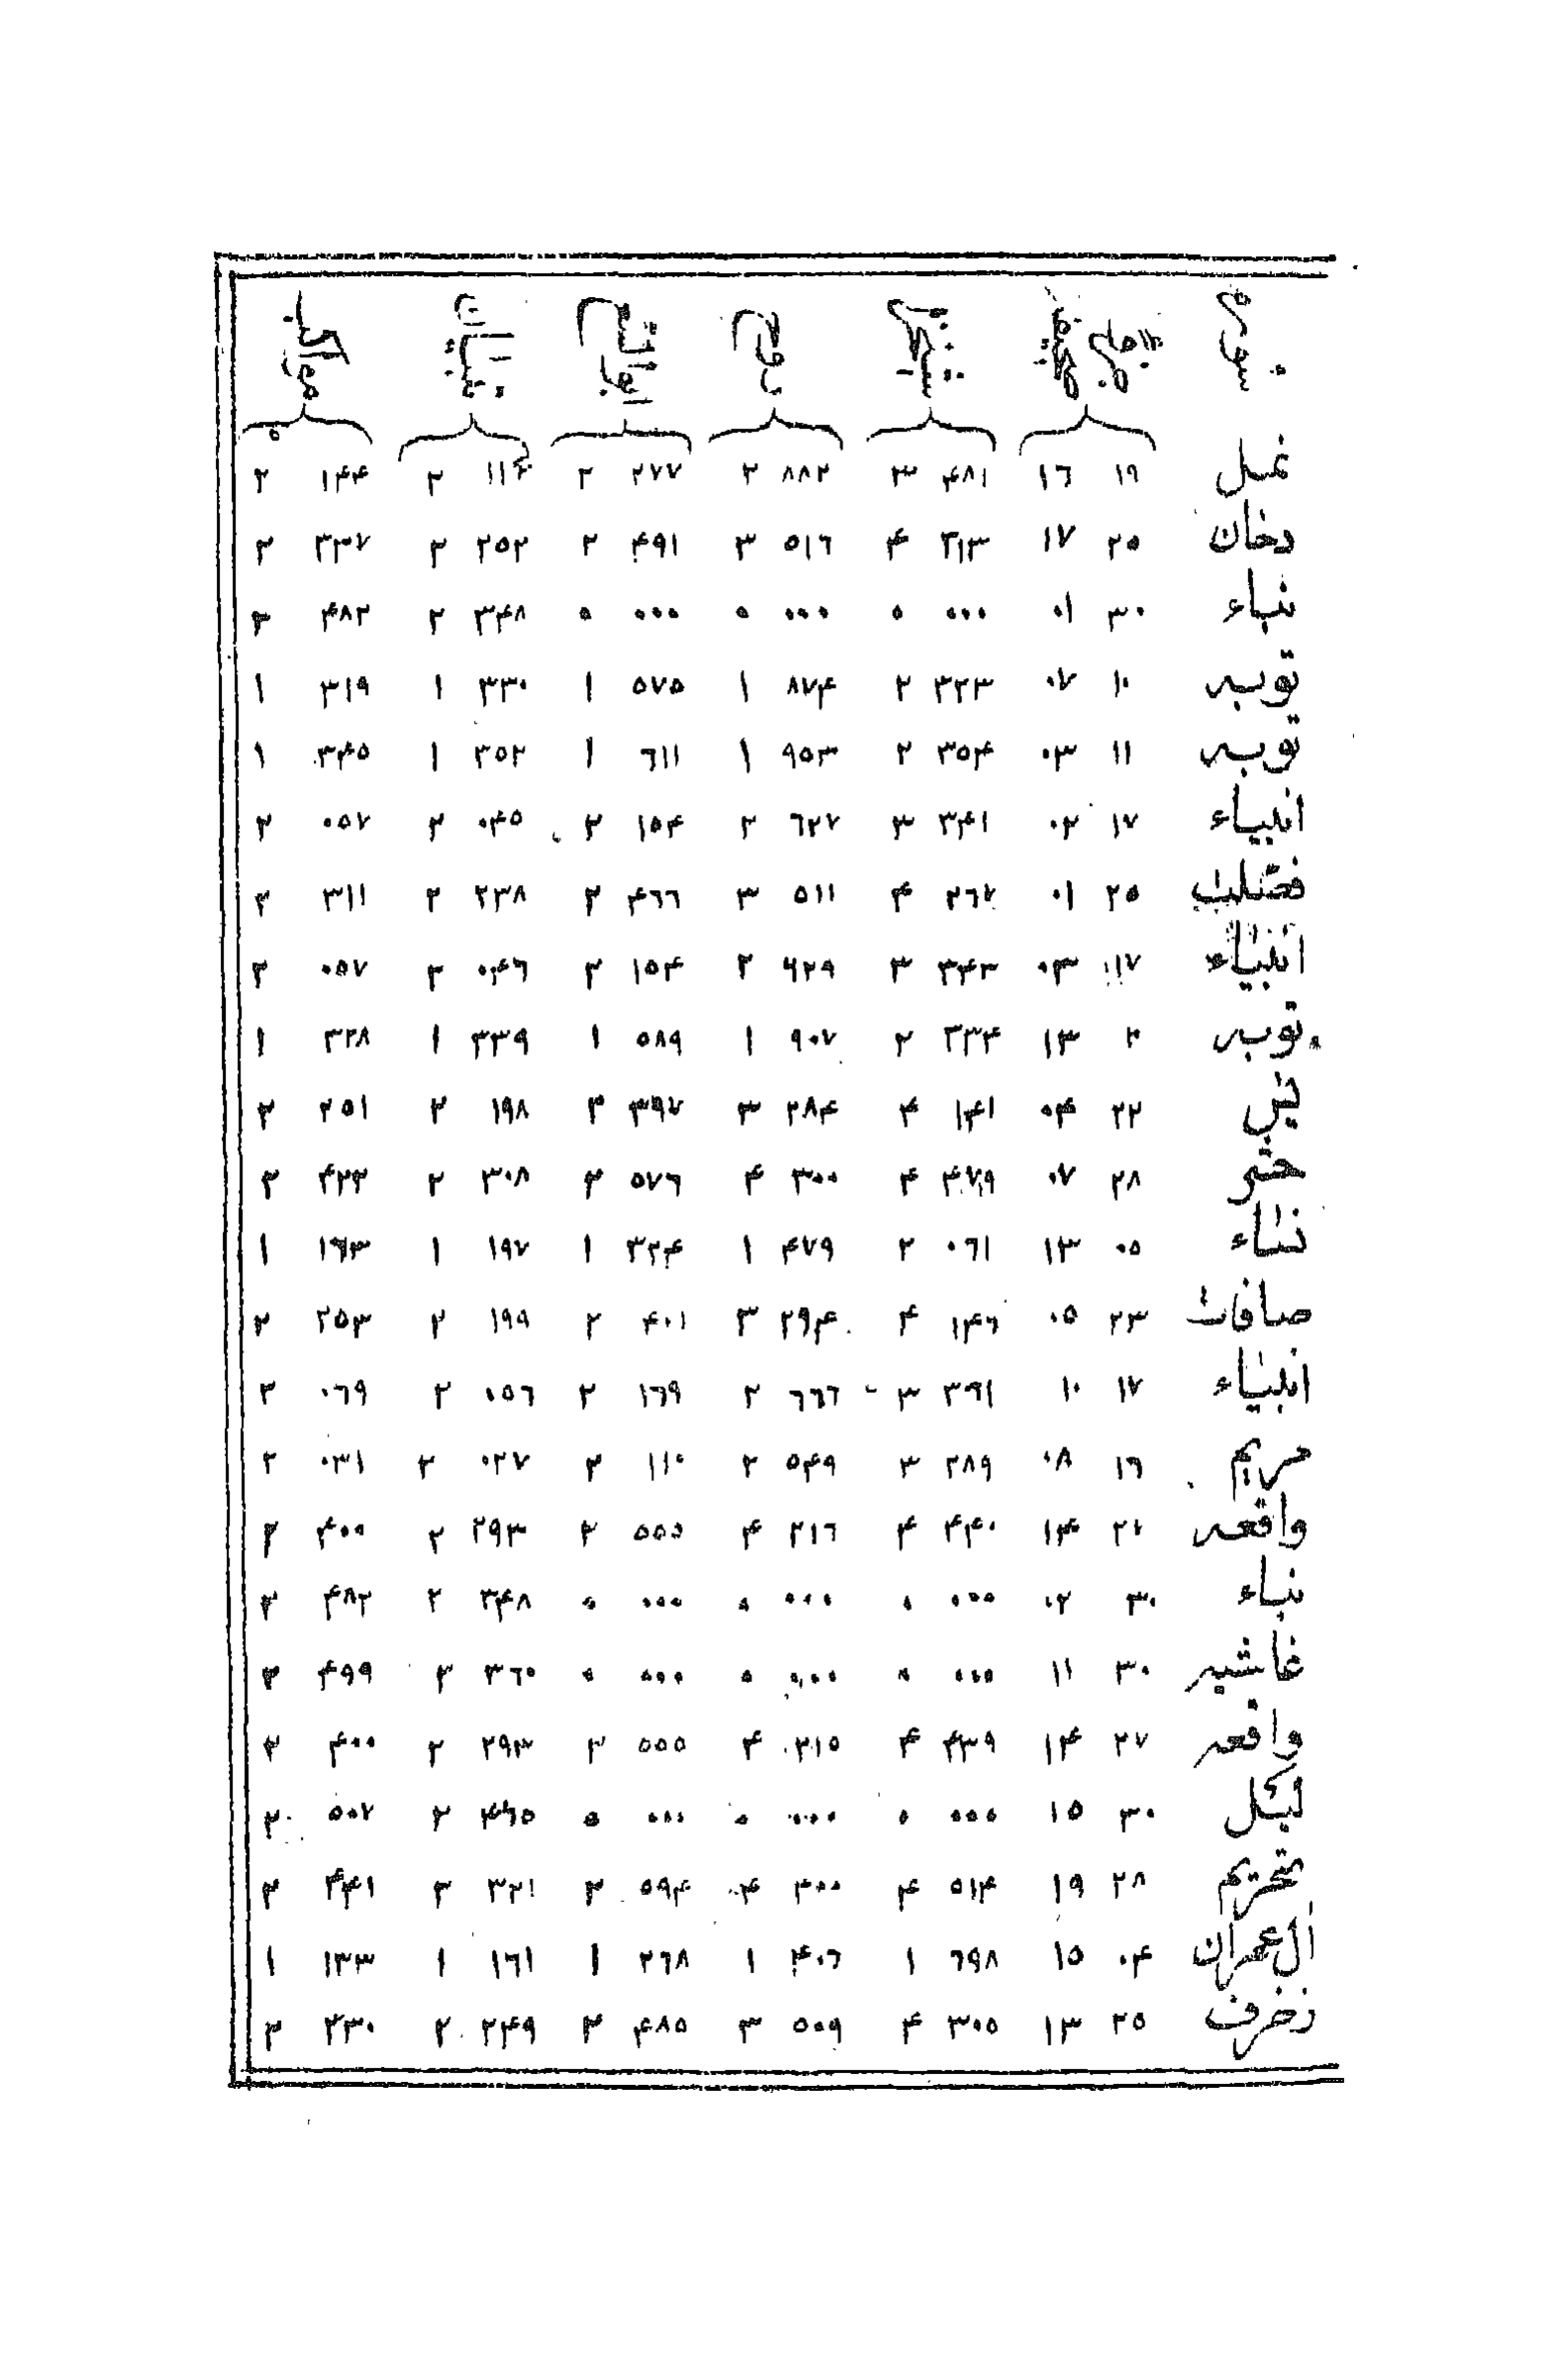 نمل ۱۹ ١٦ ۴۸۱ ۳ ۸۸۲ ۲ ۲۷۷ ۲ ۲ ۱۴۴ ۲
دخان ۲۵ ۱۷ ۳۱۳ ۴ ۵۱٦ ۳ ۴۹۱ ۲ ۲۵۲ ۲ ۳۳۷ ۲
نباء ۳۰ ۰۱ ۰۰۰ ۰ ۰۰۰ ۰ ۰۰۰ ۰ ۳۴۸ ۲ ۴۸۲ ۲
توبه ۱۰ ۰۷ ۳۲۳ ۲ ۸۷۴ ۱ ۵۷۵ ۱ ۳۳۰ ۱ ۳۱۹ ۱
توبه ۱۱ ۰۳ ۳۵۴ ۲ ۹۵۳ ۱ ٦۱۱ ۱ ۳۵۲ ۱ ۳۴۵ ۱
انبیاء ۱۷ ۰۲ ۳۴۱ ۳ ٦۲۷ ۲ ۱۵۴ ۲ ۰۴۵ ۲ ۰۵۷ ۲
فصّلت ۲۵ ۰۱ ۲٦۷ ۴ ۵۱۱ ۳ ۴٦٦ ۲ ۲۳۸ ۲ ۳۱۱ ۲
انبیاء ۱۷ ۰۳ ۳۴۳ ۳ ٦۲۹ ۲ ۱۵۴ ۲ ۰۴٦ ۲ ۰۵۷ ۲
توبه ۱۳ ۳۳۴ ۲ ۹۰۷ ۱ ۵۸۹ ۱ ۳۳۹ ۱ ۳۲۸ ۱
یس ۲۲ ۰۴ ۱۴۱ ۴ ۲۸۴ ۳ ۳۹۷ ۲ ۱۹۸ ۲ ۲۵۱ ۲
حشر ۲۸ ۰۷ ۴۷۹ ۴ ۳۰۰ ۴ ۵۷٦ ۲ ۳۰۸ ۲ ۴۲۳ ۲
نساء ۰۵ ۱۳ ۰٦۱ ۲ ۴۷۹ ۱ ۳۲۴ ۱ ۱۹۷ ۱ ۱٦۳ ۱
صافات ۲۳ ۰۵ ۱۴٦ ۴ ۲۹۴ ۳ ۴۰۱ ۲ ۱۹۹ ۲ ۲۵۳ ۲
انبیاء ۱۷ ۱۰ ۳۹۱ ۳ ٦٦٦ ۲ ۱٦۹ ۲ ۰۵٦ ۲ ۰٦۹ ۲
مریم ۱٦ ۰۸ ۲۸۹ ۳ ۵۴۹ ۲ ۱۱۰ ۲ ۰۲۷ ۲ ۰۳۱ ۲
واقعه ۲۷ ۱۴ ۴۴۰ ۴ ۲۱٦ ۴ ۵۵۵ ۲ ۲۹۳ ۲ ۴۰۰ ۲
نباء ۳۰ ۰۲ ۰۰۰ ۰ ۰۰۰ ۰ ۰۰۰ ۰ ۳۴۸ ۲ ۴۸۲ ۲
غاشیه ۳۰ ۱۱ ۰۰۰ ۰ ۰۰۰ ۰ ۰۰۰ ۰ ۳٦۰ ۲ ۴۹۹ ۲
واقعه ۲۷ ۱۴ ۴۳۹ ۴ ۲۱۵ ۴ ۵۵۵ ۲ ۲۹۳ ۲ ۴۰۰ ۲
لیل ۳۰ ۱۵ ۰۰۰ ۰ ۰۰۰ ۰ ۰۰۰ ۰ ۲ ۵۰۷ ۲
تحریم ۲۸ ۱۹ ۵۱۴ ۴ ۴ ۵۹۴ ۲ ۳۲۱ ۲ ۴۴۱ ۲
آل عمران ۰۴ ۱۵ ٦۹۸ ۱ ۴۰٦ ۱ ۲٦۸ ۱ ۱٦۱ ۱ ۱۳۳ ۱
زخرف ۲۵ ۱۳ ۳۰۵ ۴ ۵۰۹ ۳ ۴۸۵ ۲ ۲۴۹ ۲ ۳۳۰ ۲